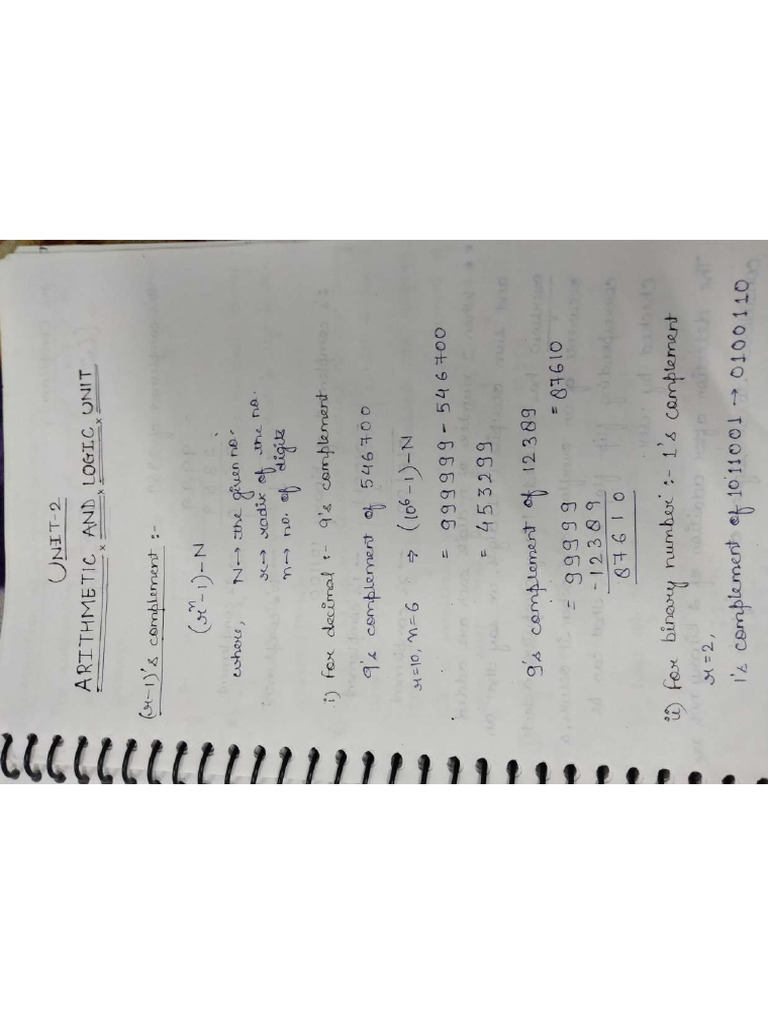 UNIT-2
ARITHMETIC AND LOGIC UNIT
(r-1)'s complement :-
(rⁿ-1)-N
where, N→ the given no.
r→ radix of the no.
n→ no. of digits
i) for decimal :- 9's complement
9's complement of 546700
r=10, n=6 ⇒ (10⁶-1)-N
= 999999 - 546700
= 453299
9's complement of 12389
= 99999 = 87610
-12389
87610
ii) for binary number :- 1's complement
r=2,
1's complement of 1011001 → 0100110